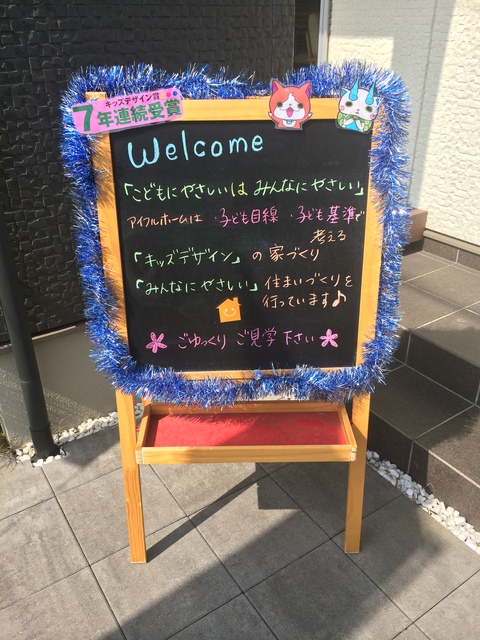 キッズデザイン賞
7年連続受賞
Welcome
「こどもにやさしいは みんなにやさしい」
アイフルホームは 子ども目線・子ども基準で
考える
「キッズデザイン」の家づくり
「みんなにやさしい」住まいづくりを
行っています♪
ごゆっくり ご見学下さい